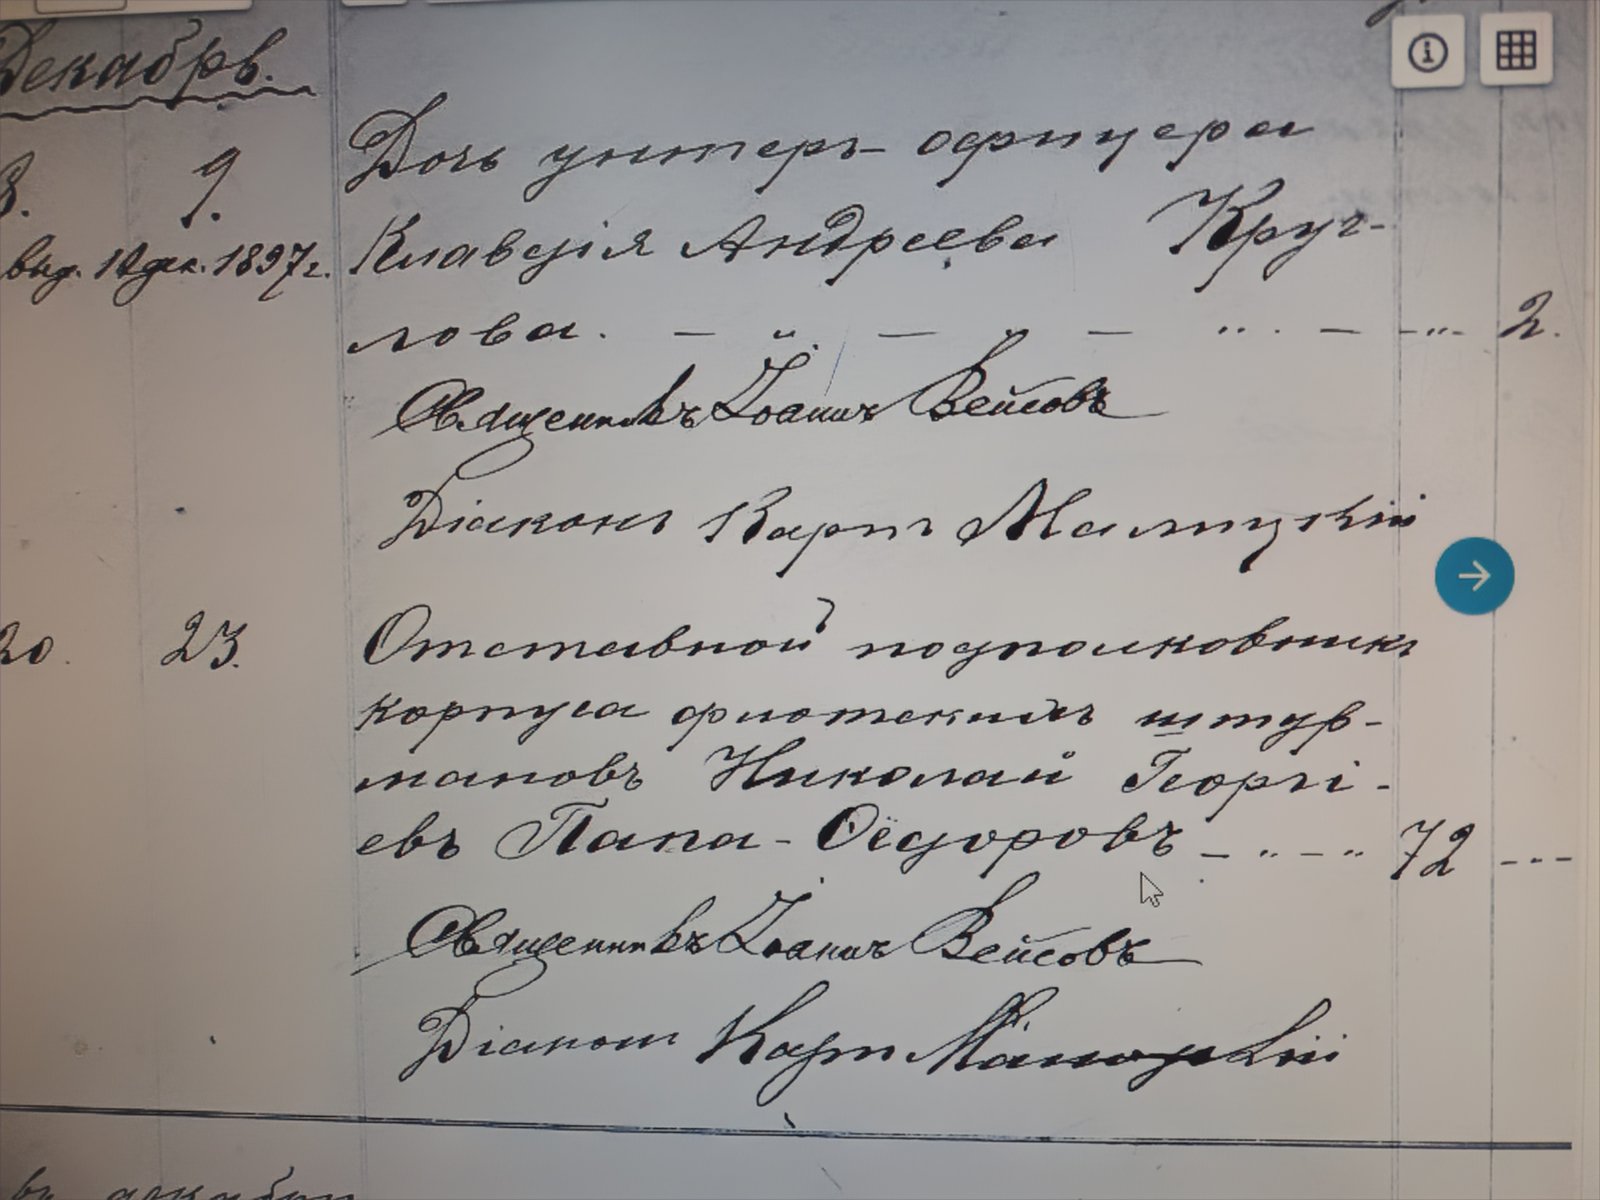 Декабрь.
8. 9. Дочь унтеръ-офицера
выд. 12 дек. 1897 г. Клавдія Андреева Круг-
лова. — „ — „ — „ — „ 2.
Священникъ Іоаннъ Вейсовъ
Діаконъ Карпъ
20. 23. Отставной подполковникъ
корпуса флотскихъ штур-
мановъ Николай Георгі-
евъ Папа-Ѳёдоровъ — „ — „ 72 ---
Священникъ Іоаннъ Вейсовъ
Діаконъ Карпъ
въ декабрѣ